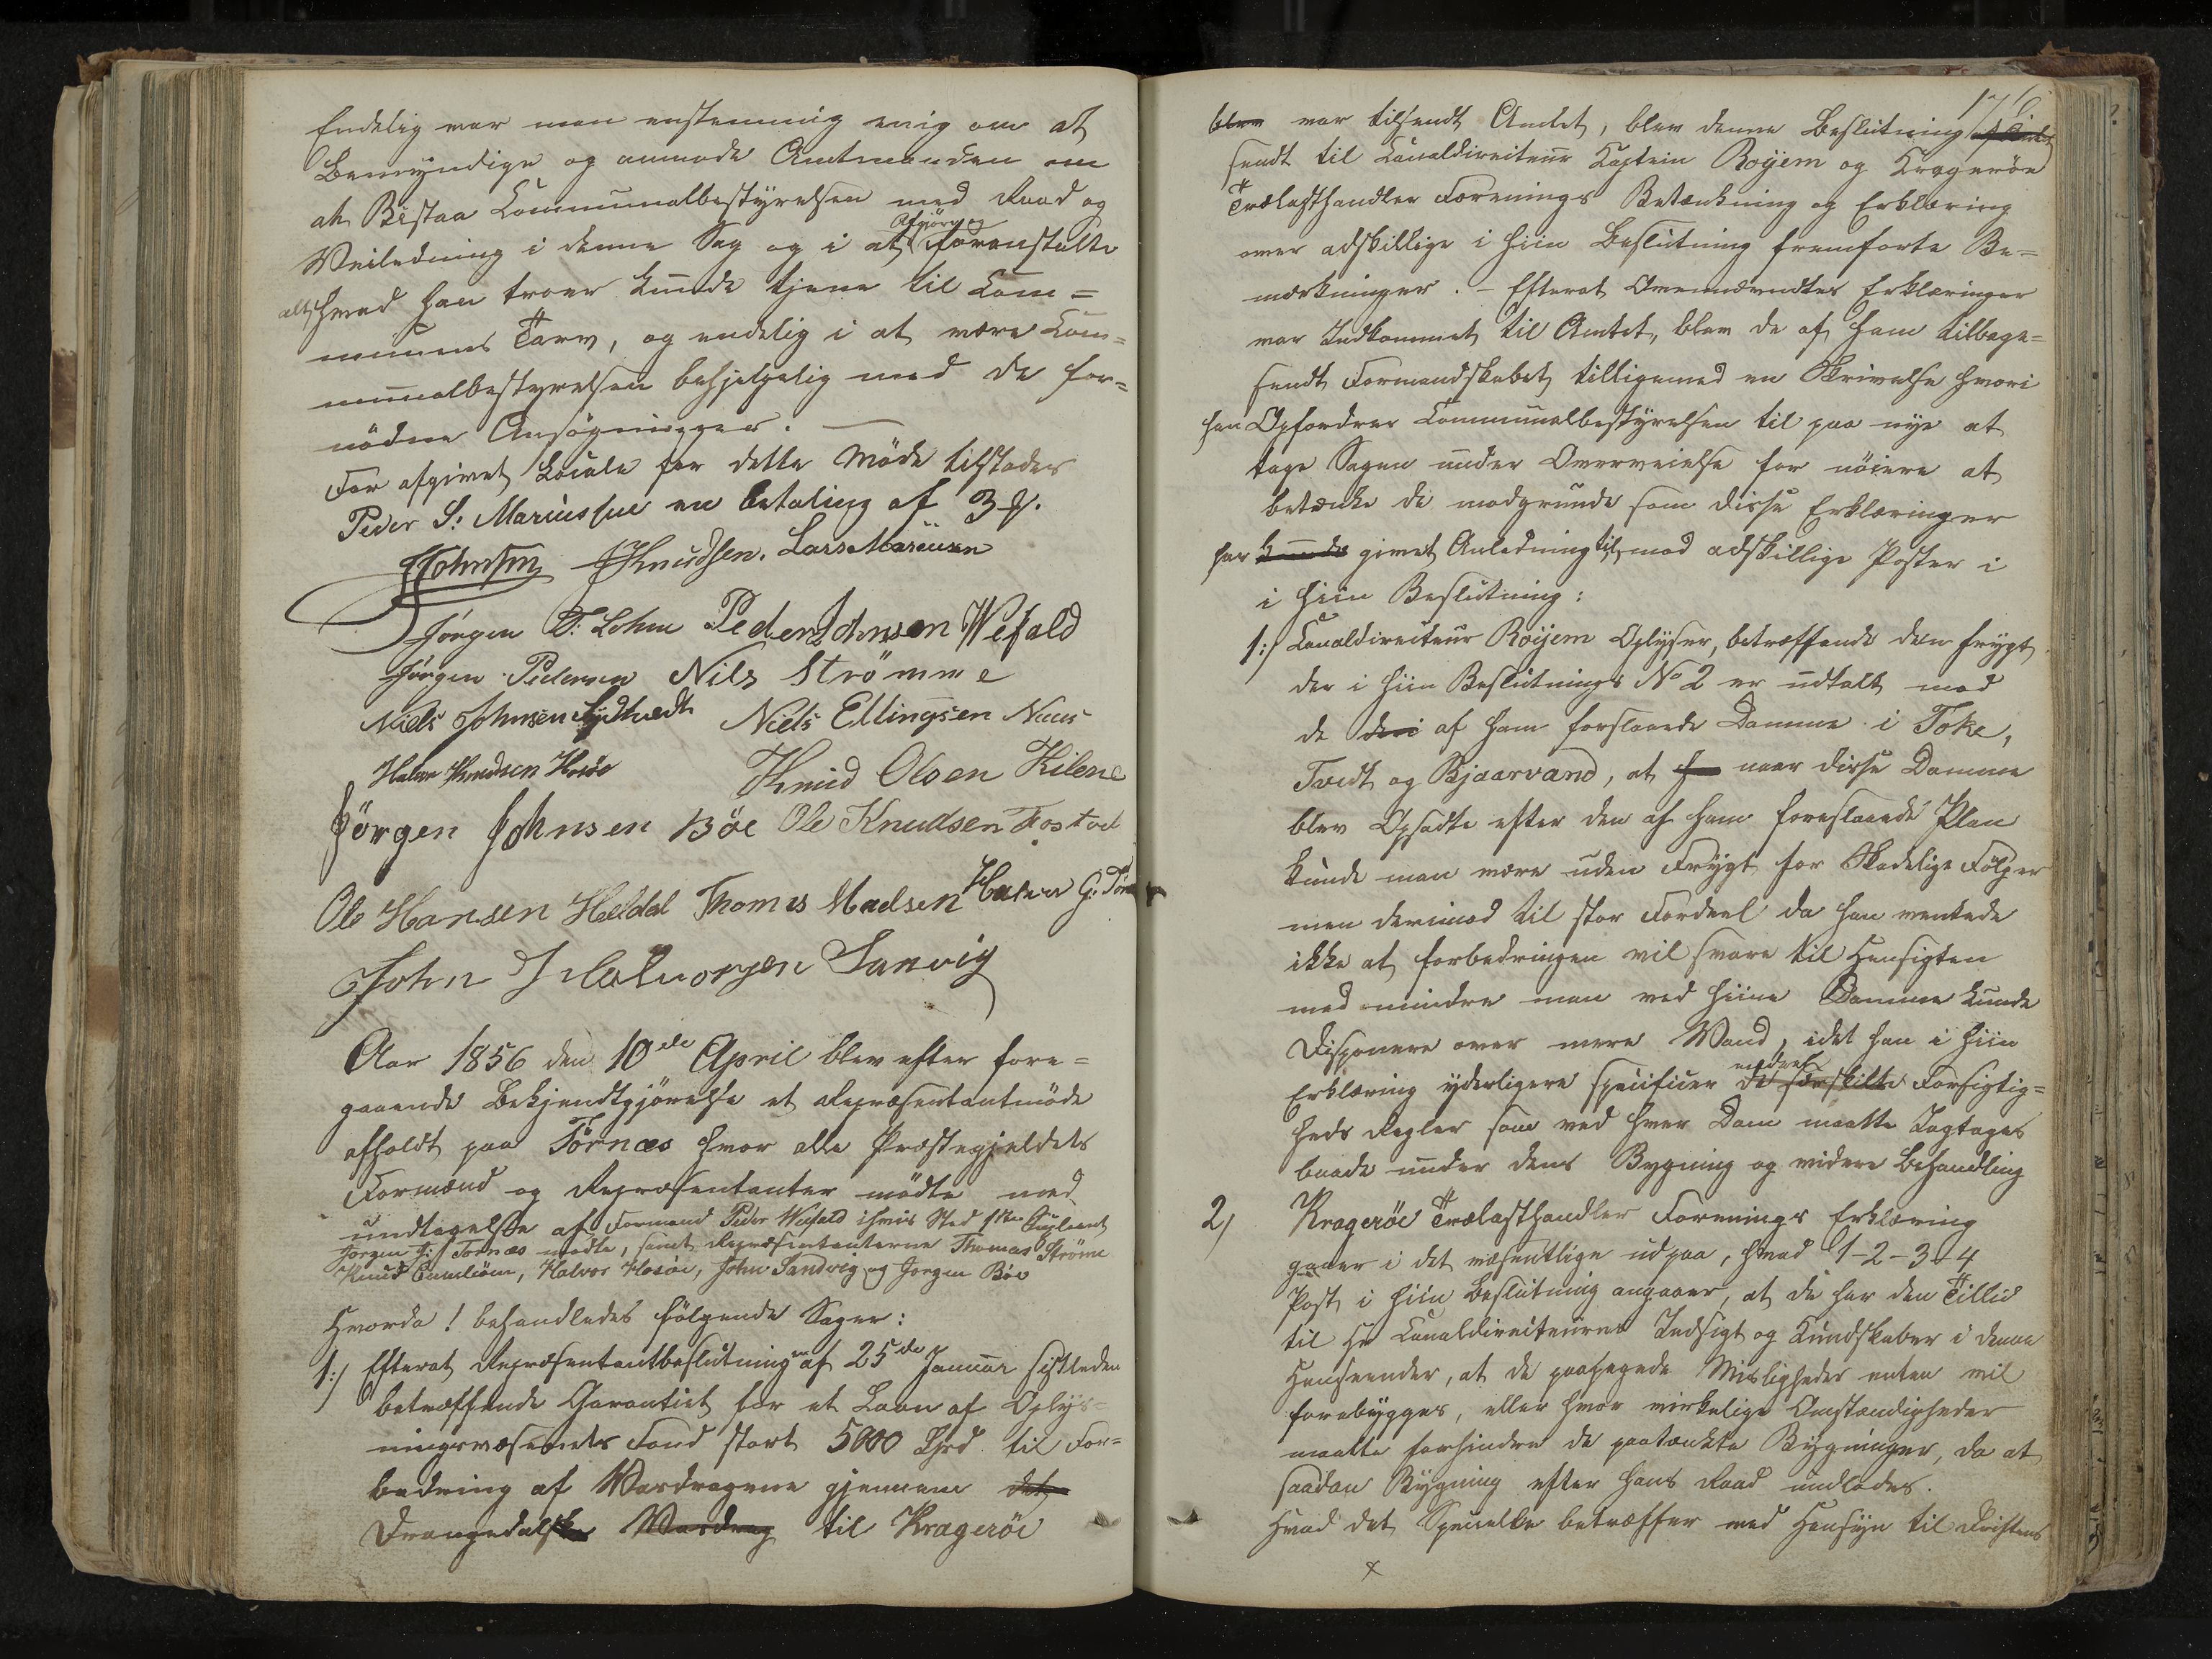 Endelig var man enstemmig enig om at
Bemyndige og anmode Amtmanden om
at Bistaa Communalbestyrelsen med Raad og
Veiledning i denne Sag og i at Afgjöre og foranstalte
alt hvad han troer kunde tjene til Com=
munens Tarv, og endelig i at være Com=
munalbestyrelsen behjelpelig med de for=
nödne Ansögninger. —
For afgivet Locale for dette Möde tilstodes
Peder S: Mariussen en betaling af 3
JJohnsen JKnudsen. Lars Mariusen
Jörgen T: Lohne Peder Johnsen Wefald
Jörgen Pedersen Nils Strömme
Niels Johnsen Niels Ellingsen Naas
Halvor Knudsen Hosöe Knud Olsen Kilene
Jörgen Johnsen Böe Ole Knudsen Fostvet
Ole Hansen Heldal Thomas Madsen Halvor G:
John J Halvorsen Sanvig
Aar 1856 den 10de April blev efter fore=
gaaende Bekjendtgjörelse et Repræsentantmöde
afholdt paa Törnæs hvor alle Præstegjeldets
Formænd og Repræsentanter mödte med
undtagelse af Formand Peder Wefald ihvis Sted 1ste Supleant
Jörgen Tornæs mödte, samt Repræsentanterne Thomas Strömme
Knud, Halvor Hosöe, John Sandvig og Jörgen Böe
Hvorda! behandledes fölgende Sager:
1:/ Efterat Repræsentantbeslutningen af 25de Januar sistleden
betræffende Garantiet for et Laan af Oplys=
ningsvæsenets Fond stort 5000 Spd til For=
bedring af Vasdragene gjennem det
Drangedalske Vasdrag til Kragerøe
176
blev var tilsendt Amtet, blev denne Beslutning
sendt til Canaldirecteur Captein Roÿem og Kragerøe
Trælasthandler Forenings Betænkning og Erklæring
over adskillige i hiin Beslutning fremforte Be=
mærkninger. – Efterat Ovennævndtes Erklæringer
var Indkommet til Amtet, blev de af ham tilbage=
sendt Formandskabet tilligemed en Skrivelse hvori
han Opfordrer Communalbestyrelsen til paa nye at
tage Sagen under Overveielse for nöiere at
betænke de modgrunde som disse Erklæringer
har kunde givet Anledning til, mod adskillige Poster i
i hiin Beslutning:
1:/ Canaldirecteur Roijem Oplyser, betræffende den frygt
der i hiin Beslutnings No 2 er udtalt mod
de deri af ham forslaaede Damme i Toke,
Tvedt og Bjaarvand, at naar disse Damme
blev Opsadte efter den af ham foreslaaede Plan
kunde man være uden Frygt for Skadelige Fölger
men derimod til stor Fordeel da han ventede
ikke at forbedringen vil svare til Hensigten
med mindre man ved hiine Damme kunde
Disponere over mere Vand, idet han i hiin
Erklæring yderligere specificer de særskilte Forsigtig=
heds Regler som ved hver Dam maatte Iagtages
baade under dens Bygning og videre Behandling
2, Kragerøe Trælasthandler Forenings Erklæring
gaaer i det væsentlige ud paa, hvad 1–2–3–4
Post i hiin Beslutning angaaer, at de har den Tillid
til Hr Canaldirecteurens Indsigt og Kundskaber i denne
Henseender, at de paapegede Misligheder enten vil
forebygges, eller hvor virkelige Omstændigheder
maatte forhindre de paatænkte Bygninger, da at
saadan Bygning efter hans Raad undlades.
Hvad det Specielle betræffer med Hensyn til Fristens
x